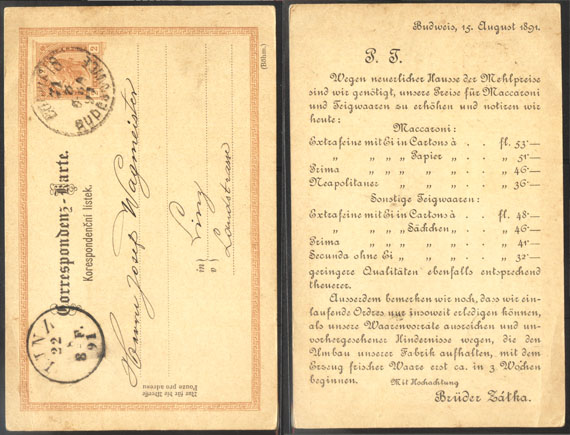 2
(Böhm.)
BUDWEIS
BUDĚJOVICE
Correspondenz-Karte.
Korespondenční lístek.
Herrn Josef Wagmeister
in
v
Linz
Landstrasse
LINZ
22
8
91
F.
Nur für die Adresse
Pouze pro adresu
Budweis, 15. August 1891.
P. T.
Wegen neuerlicher Hausse der Mehlpreise
sind wir genötigt, unsere Preise für Maccaroni
und Teigwaaren zu erhöhen und notiren wir
heute:
Maccaroni:
Extrafeine mit Ei in Cartons à . . fl. 53·—
„ „ „ „ Papier „ . . „ 51·—
Prima „ „ „ „ „ . . „ 46·—
Neapolitaner „ „ „ „ . . „ 36·—
Sonstige Teigwaaren:
Extrafeine mit Ei in Cartons à . . fl. 48·—
„ „ „ „ Säckchen „ . . „ 46·—
Prima „ „ „ „ „ . . „ 41·—
Secunda ohne Ei „ „ „ . . „ 32·—
geringere Qualitäten ebenfalls entsprechend
theuerer.
Ausserdem bemerken wir noch, dass wir ein-
laufende Ordres nur insoweit erledigen können,
als unsere Waarenvorräte ausreichen und un-
vorhergesehener Hindernisse wegen, die den
Umbau unserer Fabrik aufhalten, mit dem
Erzeug frischer Waare erst ca. in 3 Wochen
beginnen.
Mit Hochachtung
Brüder Zátka.